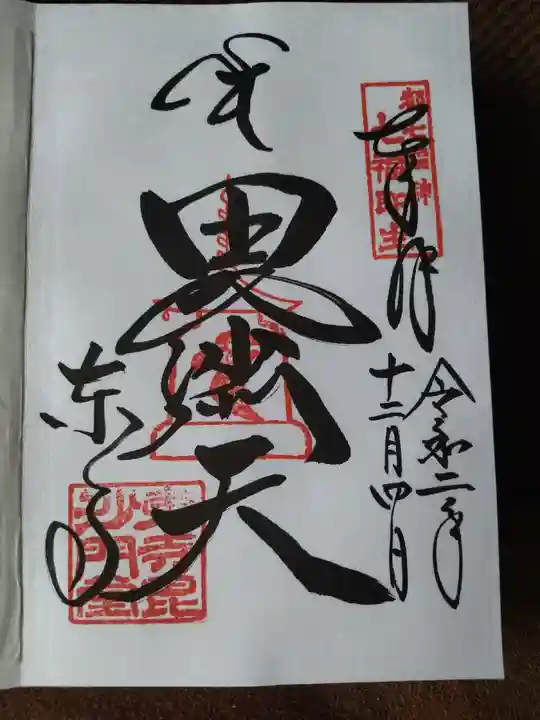 奉拝
令和二年
十二月四日
毘沙門天
東寺
都七福神
東寺毘
沙門堂